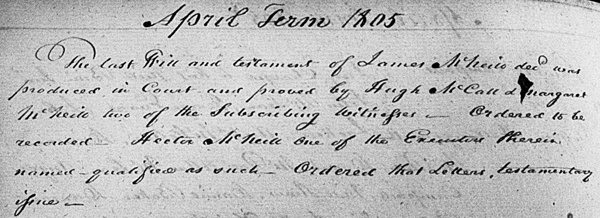 April Term 1805
The last Will and testament of James McNeill decd was
produced in Court and proved by Hugh McCall & margaret
McNeill two of the Subscribing Witnesses — Ordered to be
recorded — Hector McNeill one of the Executors therein
named — qualified as such — Ordered that Letters, testamentary
issue —